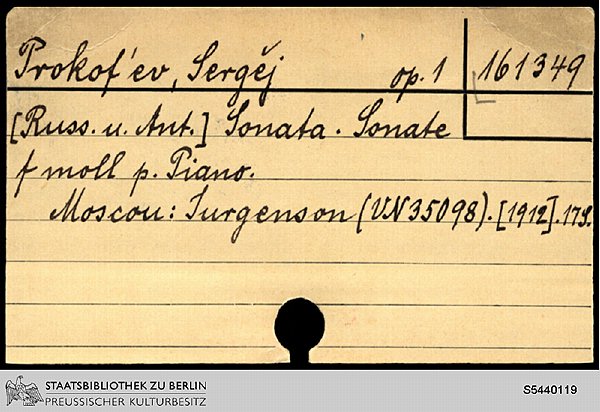 Prokof'ev, Sergěj op. 1 161349
[Russ. u. Ant.] Sonata. Sonate
f moll p. Piano.
Moscou: Jurgenson (VN 35098). [1912]. 17 S.
STAATSBIBLIOTHEK ZU BERLIN
PREUSSISCHER KULTURBESITZ
S5440119